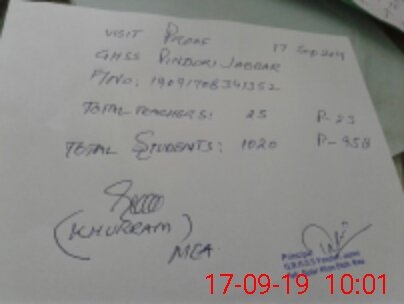 VISIT PROOF 17 Sep 2019
GHSS PINDORI JABBAR
P/NO: 19091708343352
TOTAL TEACHERS: 25 P-23
TOTAL STUDENTS: 1020 P-958
(KHURRAM)
MEA.
Principal
17-09-19 10:01